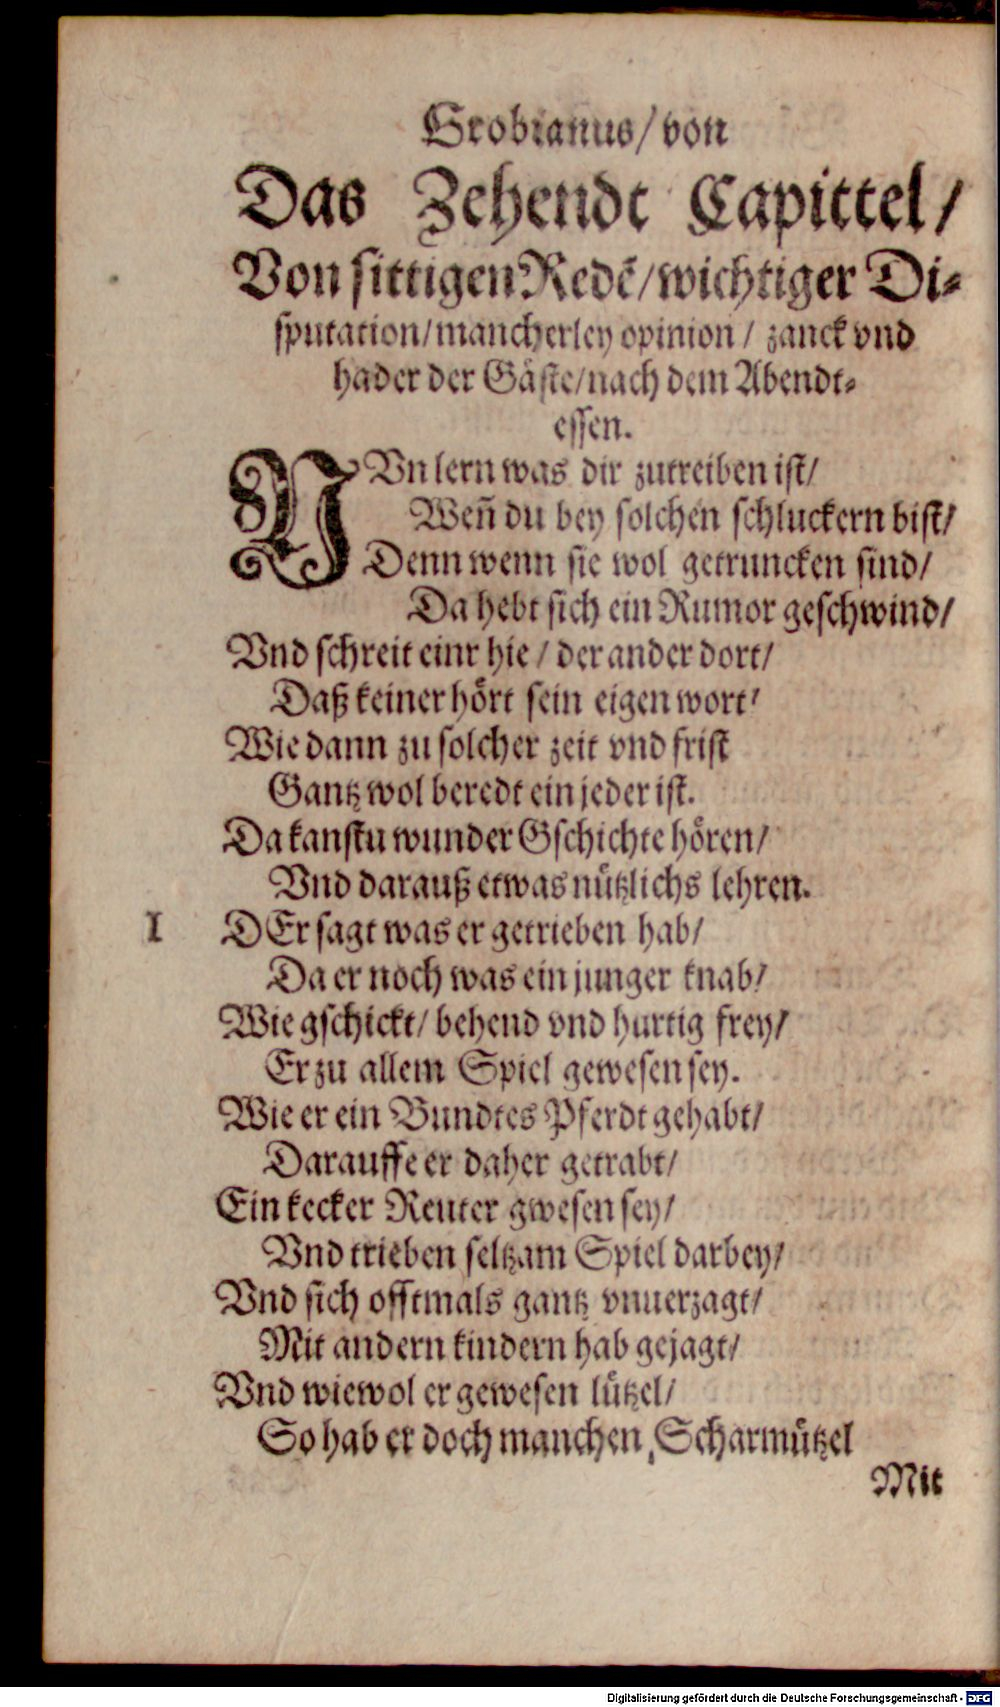 Grobianus/ von
Das Zehendt Capittel/
Von sittigen Redẽ/ wichtiger Di-
sputation/ mancherley opinion/ zanck vnd
hader der Gäste/ nach dem Abendt-
essen.
NVn lern was dir zutreiben ist/
Weñ du bey solchen schluckern bist/
Denn wenn sie wol getruncken sind/
Da hebt sich ein Rumor geschwind/
Vnd schreit einr hie/ der ander dort/
Daß keiner hört sein eigen wort/
Wie dann zu solcher zeit vnd frist
Gantz wol beredt ein jeder ist.
Da kanstu wunder Gschichte hören/
Vnd darauß etwas nützlichs lehren.
I DEr sagt was er getrieben hab/
Da er noch was ein junger knab/
Wie gschickt/ behend vnd hurtig frey/
Er zu allem Spiel gewesen sey.
Wie er ein Bundtes Pferdt gehabt/
Darauffe er daher getrabt/
Ein kecker Reuter gwesen sey/
Vnd trieben seltzam Spiel darbey/
Vnd sich offtmals gantz vnuerzagt/
Mit andern kindern hab gejagt/
Vnd wiewol er gewesen lützel/
So hab er doch manchen Scharmützel
Mit
Digitalisierung gefördert durch die Deutsche Forschungsgemeinschaft - DFG